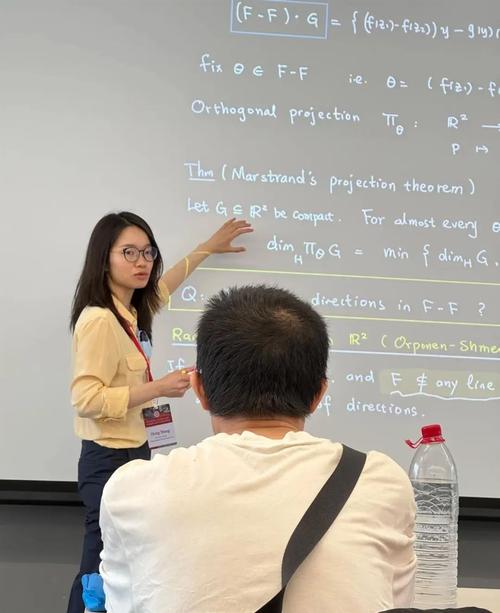 (F-F)·G = {(f(z₁)-f(z₂))y - g(y)
fix θ ∈ F-F i.e. θ = (f(z₁)-f
Orthogonal projection Π_θ : ℝ² →
P ↦
Thm (Marstrand's projection theorem)
Let G ⊆ ℝ² be compact. For almost every θ
dim_H Π_θ G = min { dim_H G,
Q: directions in F-F ?
ℝ² (Orponen-Shme
If and F ⊄ any line
of directions.